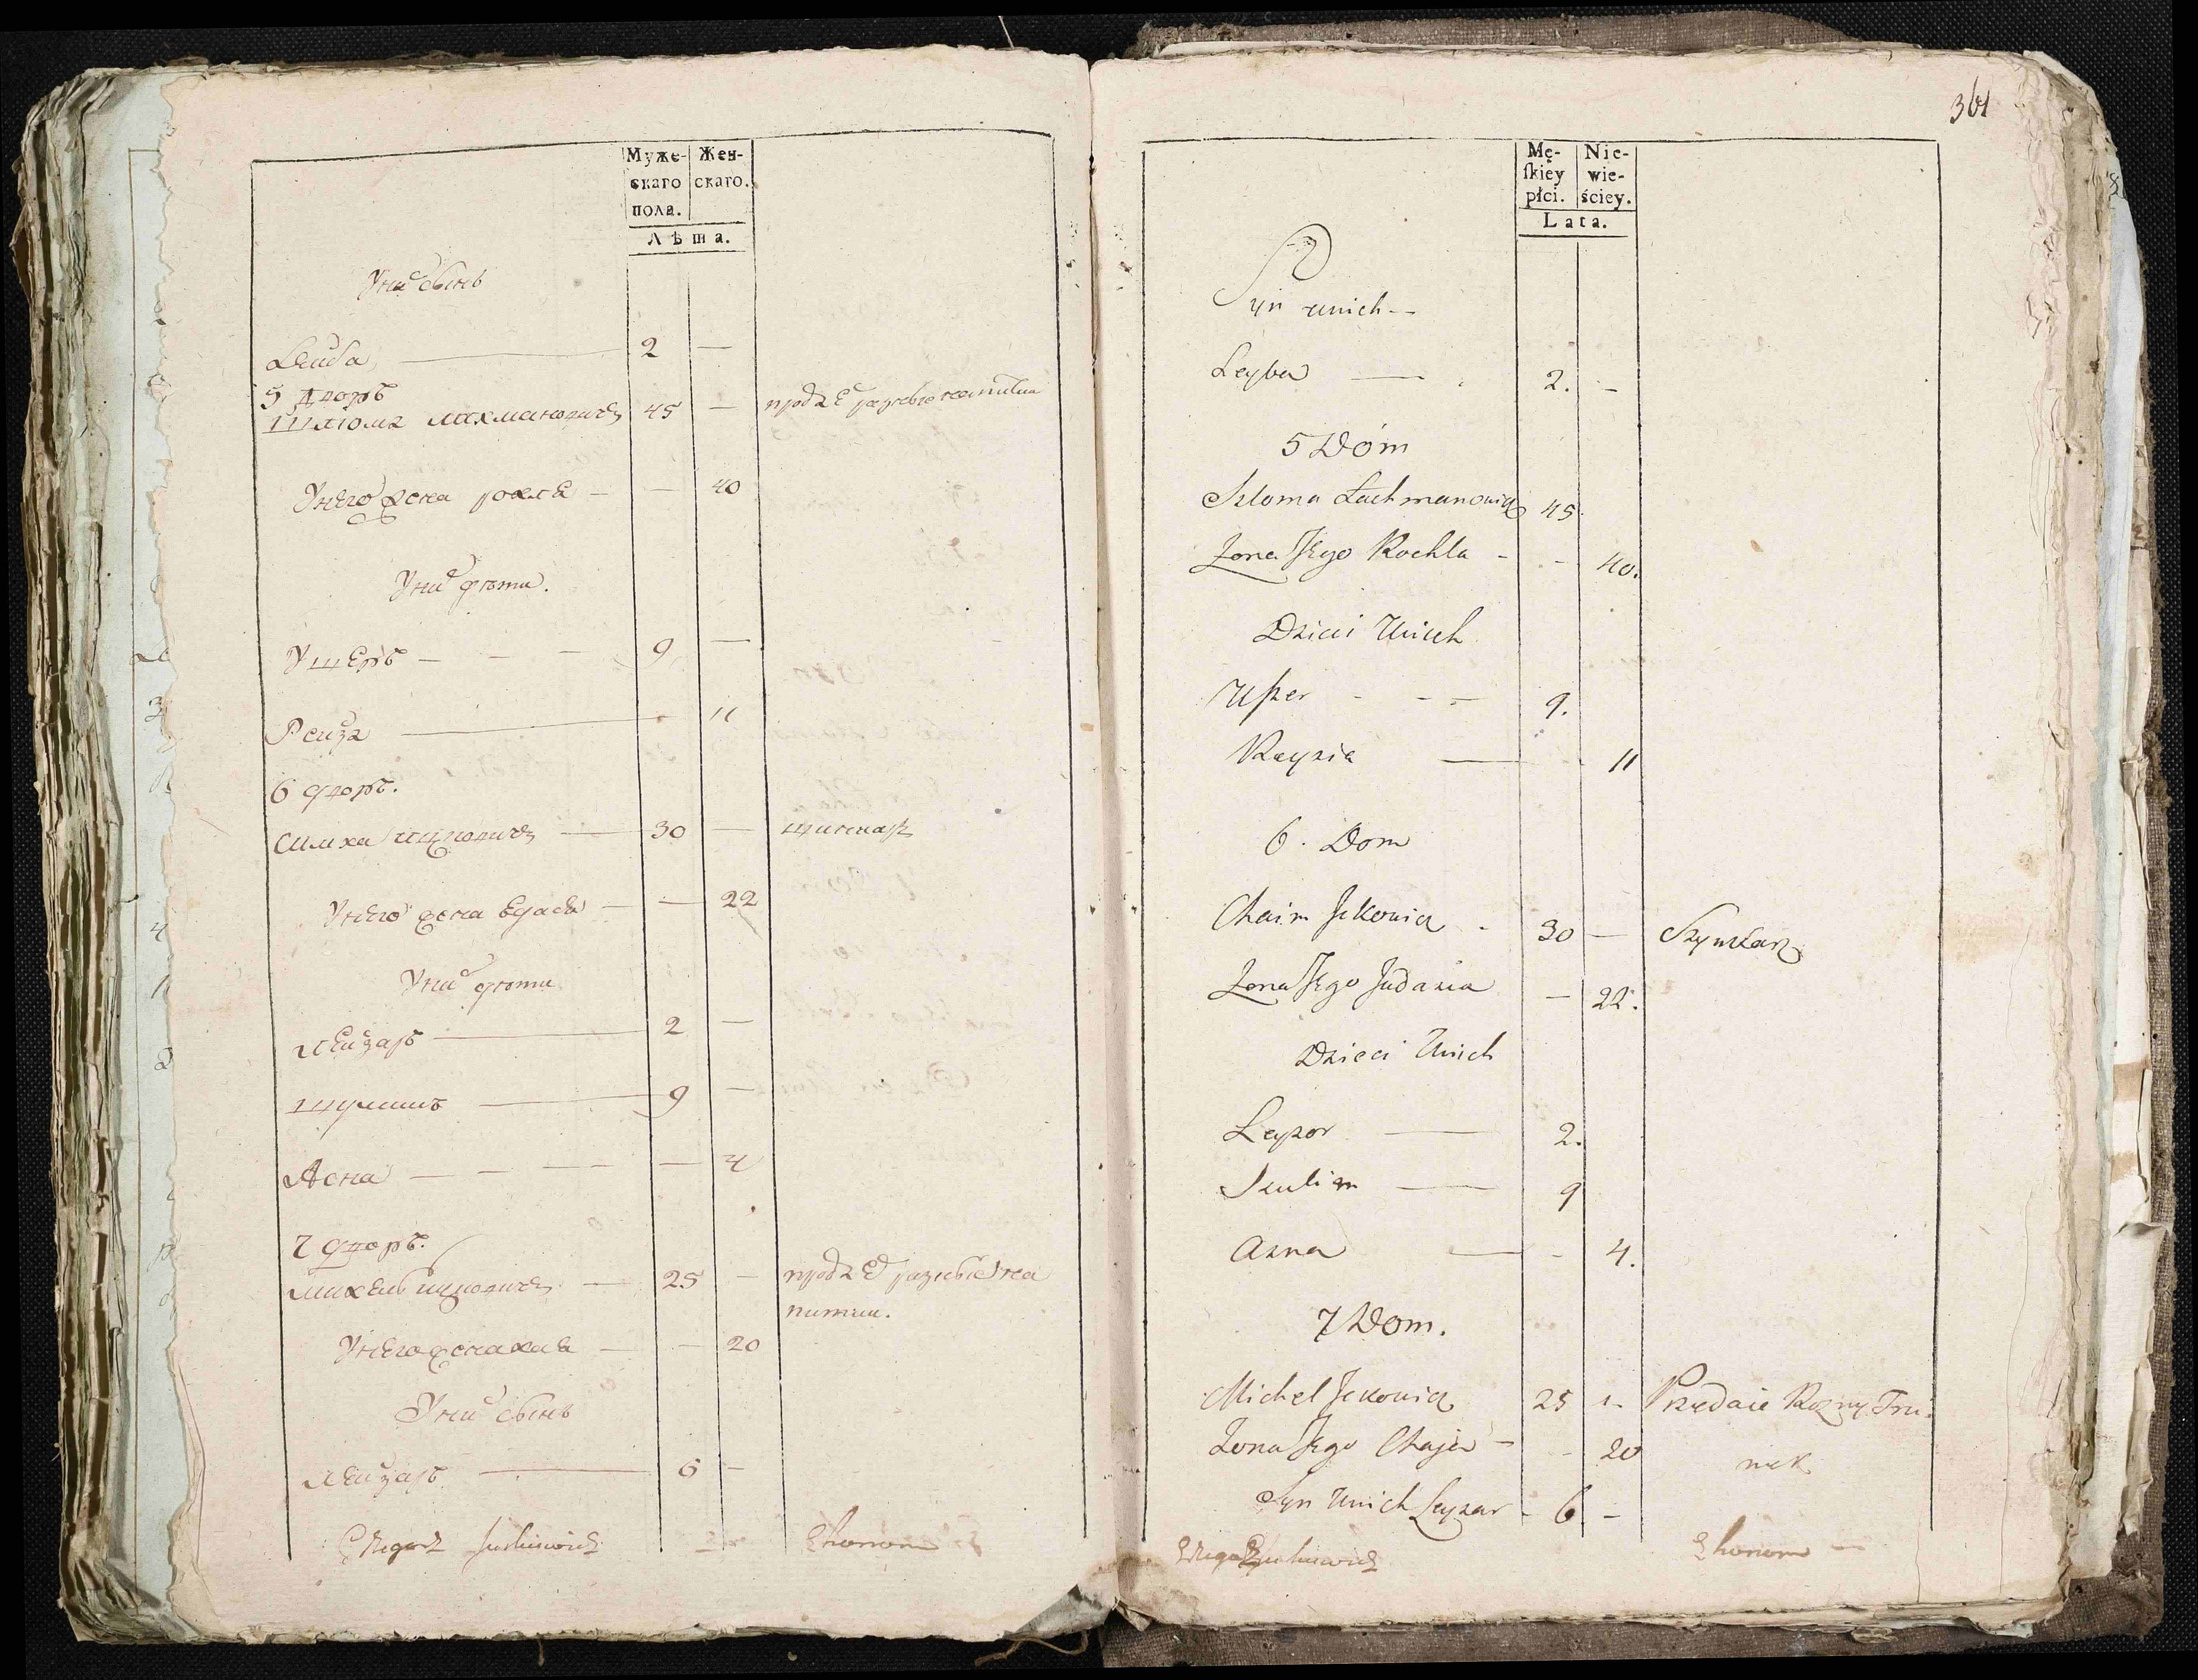 Муже- Жен-
скаго скаго.
пола.
Лѣта.
У ни сынъ
Леиба — 2 —
5 дворъ
Шлиома Лахмановичъ 45 —
У него жена Рохля — — 40
У ни дѣти.
Ушеръ — — — 9 —
Реиза — 11
6 дворъ.
Симха Ицковичъ — 30 — шинкаръ
У него жена — — 22
У ни дѣти
Леизаръ — 2 —
Шулимъ — 9 —
Асна — — — — — 4
7 дворъ.
Михель Ицковичъ — 25 —
питии.
У него жена Хая — — 20
У ни сынъ
Леизаръ — 6 —
Ekonom
361
Mę- Nie-
ſkiey wie-
płci. ściey.
Lata.
Syn unich --
Leyba — 2. -
5 Dóm
Szloma Lachmanowicz 45
Zona Jego Rochla - - 40.
Dzieci Unich
Uszer - - - 9.
Reyzia — 11
6. Dom
Chaim Jckowicz - 30 — Szynkarz
Zona Jego Judasia — 22.
Dzieci Unich
Leyzor — 2.
Szulim — 9
Asna — - 4.
7 Dom.
Michel Jckowicz 25 - Przedaie Rozny Tru-
Zona Jego Chaja - - 20 nek
Syn Unich Leyzar - 6 -
Ekonom —